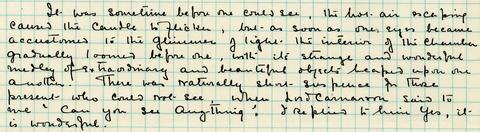 It was sometime before one could see, the hot air escaping
caused the candle to flicker, but as soon as one's eyes became
accustomed to the glimmer of light. the interior of the chamber
gradually loomed before one, with its strange and wonderful
medley of extraordinary and beautiful objects heaped upon one
another. There was naturally short suspense for those
present who could not see. When Lord Carnarvon said to
me "Can you see anything". I replied to him Yes, it
is wonderful.